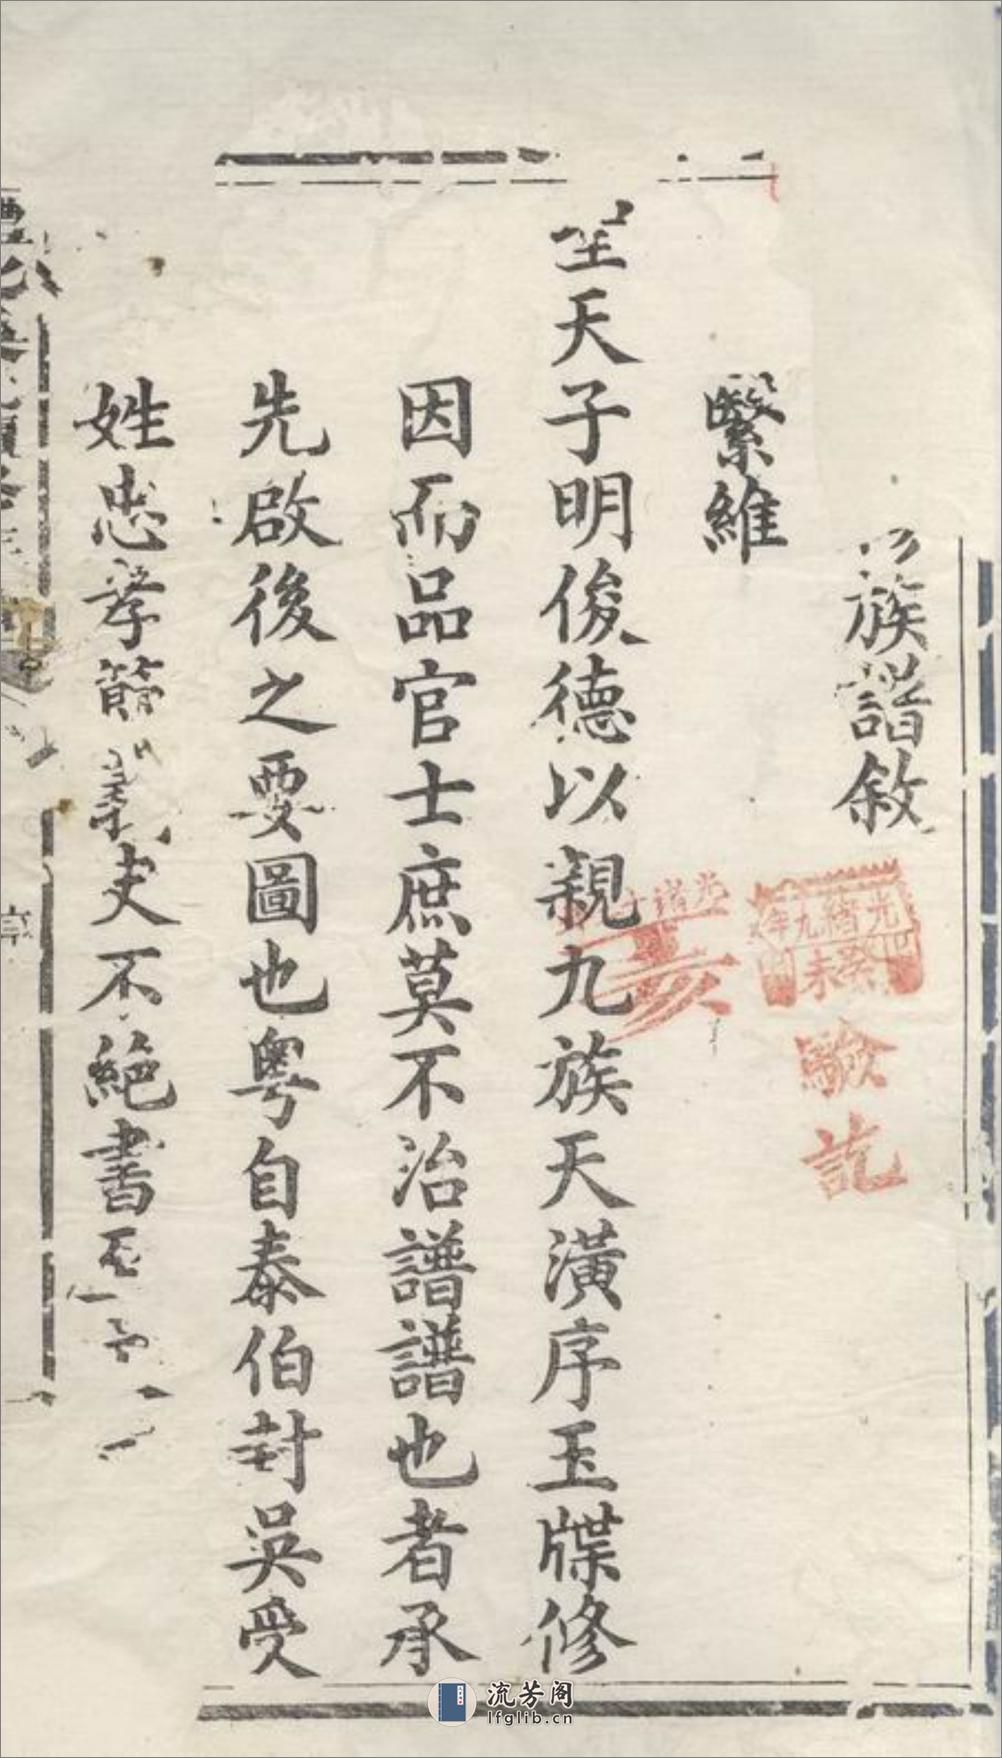 族譜敘
繄維
聖天子明俊德以親九族天潢序玉牒修
因而品官士庶莫不治譜譜也者承
先啟後之要圖也粵自泰伯封吳受
姓忠孝節義史不絕書
光緒九年
癸未
驗訖
亥
流芳阁
lfglib.cn